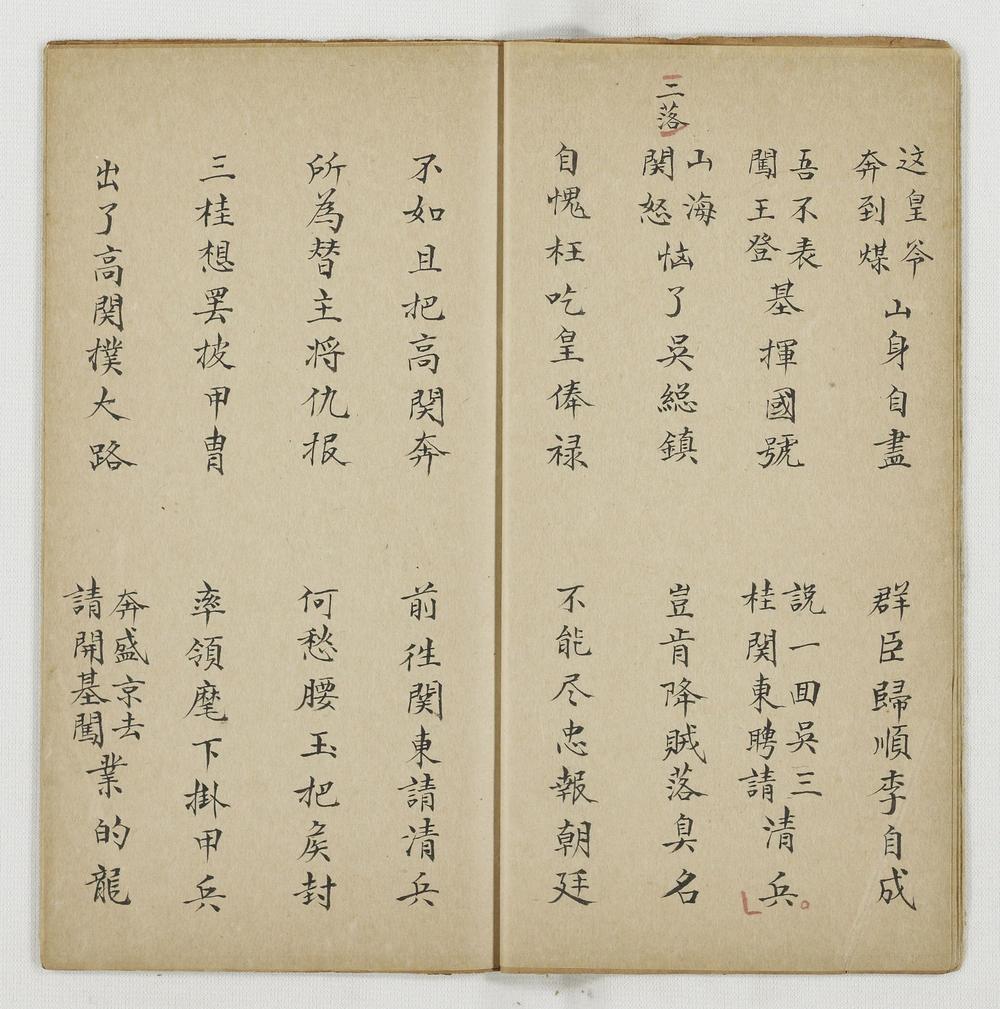 这皇爷奔到煤山身自盡
群臣歸順李自成
吾不表闖王登基揮國號
説一回吳三桂関東聘請清兵
三落
山海関怒恼了吳総鎮
豈肯降賊落臭名
自愧枉吃皇俸禄
不能尽忠報朝廷
不如且把高関奔
前往関東請清兵
所為替主将仇报
何愁腰玉把侯封
三桂想罢披甲胄
率領麾下掛甲兵
出了高関撲大路
奔盛京去請開基闖業的龍